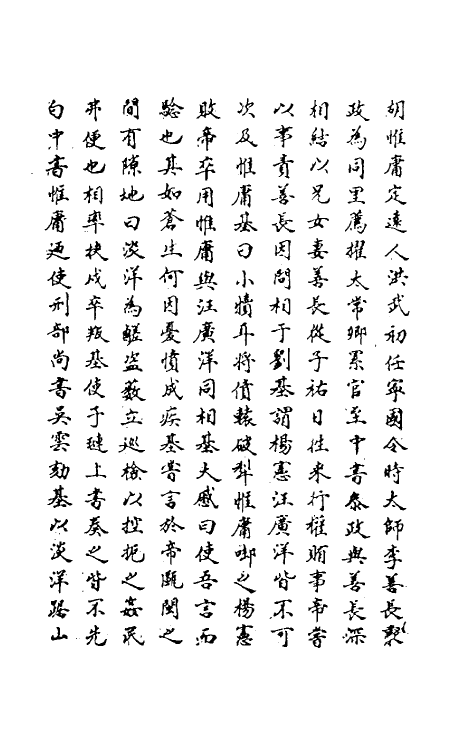 胡惟庸定遠人洪武初任寧國令時太師李善長秉
政為同里薦擢太常卿累官至中書參政與善長深
相結以兄女妻善長從子祐日往來行權賄事帝嘗
以事責善長因問相于劉基謂楊憲汪廣洋皆不可
次及惟庸基曰小犢耳將僨轅破犁惟庸啣之楊憲
敗帝卒用惟庸與汪廣洋同相基大慼曰使吾言而
驗也其如蒼生何因憂憤成疾基嘗言於帝甌閩之
間有隙地曰淡洋為鹺盜藪立巡檢以控扼之姦民
弗便也相率挾戍卒叛基使子璉上書奏之皆不先
白中書惟庸廼使刑部尚書吳雲劾基以淡洋踞山